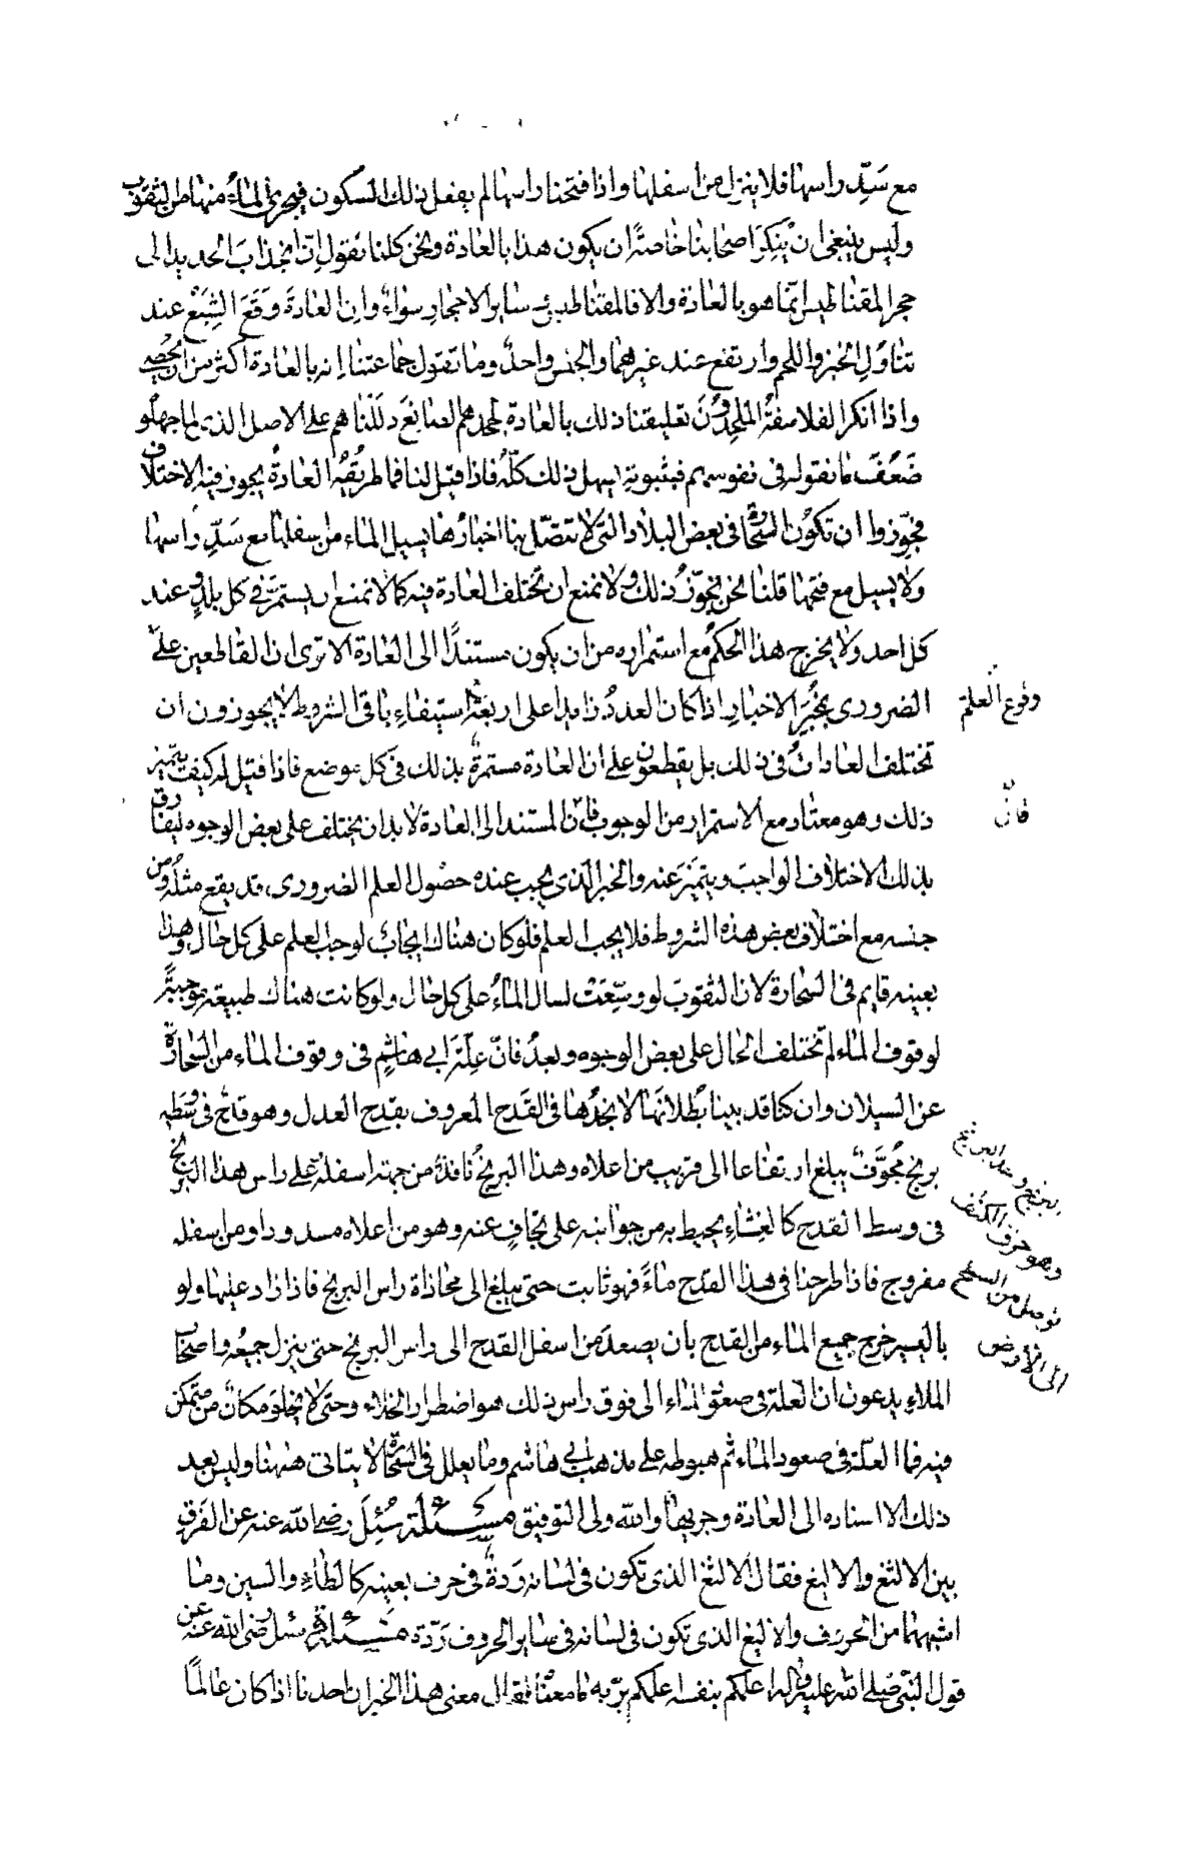 مع سَدِّ راسها فلا ينزل من اسفلها واذا فتحنا راسها لم يفعل ذلك السكون فيجرى الماءُ منها من الثقوب
وليس ينبغى ان يُنكِرَ اصحابنا خاصةً ان يكون هذا بالعادة ونحن كلنا نقول اِنّ انجذابَ الحديد الى
حجر المقناطيس انّما هو بالعادة والا فالمقناطيس وسائر الاحجارِ سواءٌ وان العادةَ وَقَعَ الشِبَعُ عند
تناوُلِ الخبز واللحم وارتفع عند غيرهما والجنس واحدٌ وما تقول جماعتنا انه بالعادة اكثر من ان يُحصى
واذا انكر الفلاسفةُ المُلحِدُونَ تعليقنا ذلك بالعادة لجحدهم الصانعَ دَلَلْنا هم على الاصل الذى لما جهلو
ضَعُفَ ما نقوله فى نفوسهم فبثبوته يسهل ذلك كلّه فاذا قيل لنا فما طريقُهُ العادةُ يجوز فيه الاختلاف
فجَوِّزوا ان تكون السَّحّارةُ فى بعض البلاد التى لا تتصّل بنا اخبارُها يسيل الماء من سفلها مع سَدِّ راسها
ولا يسيل مع فتحها قلنا نحن نجوّزُ ذلك ولا نمنع ان تختلف العادة فيه كما لا نمنع ان يستمرّ فى كل بلدٍ و عند
كل احد ولا يخرج هذا الحكمُ مع استمراره من ان يكون مستندًا الى العادة الا ترى ان القاطعين على
وقوع العلم
الضرورى بمُخبَرِ الاخبارِ اذا كان العددُ زايدا على اربعةٍ استيفاءِ باقى الشروط لا يجوزون ان
تختلف العاداتُ فى ذلك بل يقطعون على ان العادة مستمرةٌ بذلك فى كل موضع فاذا قيل لهم كيف يتميّز
ذلك وهو معتاد مع الاستمرار من الوجوب فان المستند الى العادة لا بد ان يختلف على بعض الوجوه ليفارق
فانّ
بذلك الاختلاف الواجبَ ويتميَّزَ عنه والخبر الذى يجب عنده حصُول العلم الضرورى، قد يقع مثلُهُ ومن
جنسه مع اختلاف بعض هذه الشروط فلا يجب العلم فلو كان هناك ايجابٌ لوجب العلم على كل حال وهذا
بعينه قايم فى السَحّارة لان الثقوبَ لو وسِّعَتْ لسال الماءُ على كل حال ولو كانت هناك طبيعة موجبةً
لوقوف الماء لم تختلف الحال على بعض الوجوه وبعدُ فانّ عِلّةَ ابى هاشمٍ فى وقوف الماء من السَحّارة
عن السيلان وان كنا قد بينا بُطلانَها لا نجدُها فى القَدح المعروف بقدح العدل وهو قدحٌ فى وسَطِه
بربخ مُجوَّفٌ يبلغ ارتفاعا الى قريب من اعلاه وهذا البربخُ نافذٌ من جهة اسفله على راس هذا البربخ
فى وسط القدح كالغِشاءِ يحيط به من جوانبه على تجافٍ عنه وهو من اعلاه مسدودا ومن سفله
مفروج فاذا طرحنا فى هذا القدح ماءً فهو ثابت حتى يبلغ الى محاذاة راس البربخ فاذا زاد عليها ولو
وهو خزف الكنف
توصل من السطح
الى الارض
باليسير خرج جميع الماء من القدح بان يصعدَ من اسفل القدح الى راس البربخ حتى ينزل جميعُه واصحابُ
الملاءِ يدعون ان العلة فى صعود الماء الى فوق راس ذلك هو اضطرار الخلاء وحتى لا يخلوَ مكانٌ من متمكن
فيه فما العلّة فى صعود الماء ثم هبوطه على مذهب ابى هاشم وما يعلل فى السَحّارة لا يتاتى هٰهنا وليس بعد
ذلك الا اسناده الى العادة وجريها والله ولى التوفيق مسئلة سُئِلَ رضى الله عنه عن الفَرقِ
بين الالثغ والاليغ فقال الالثغ الذى تكون فى لسانه رَدةٌ فى حرف بعينه كالطاءِ والسين وما
اشبههما من الحروف والاليغ الذى تكون فى لسانه فى ساير الحروف رَدّة مسئلة سئل رضى الله عنه عن
قول النبى صلى الله عليه واله اعلمكم بنفسه اعلمكم بربّه ما معناه فقال معنى هذا الخبر ان احدنا اذا كان عالمًا